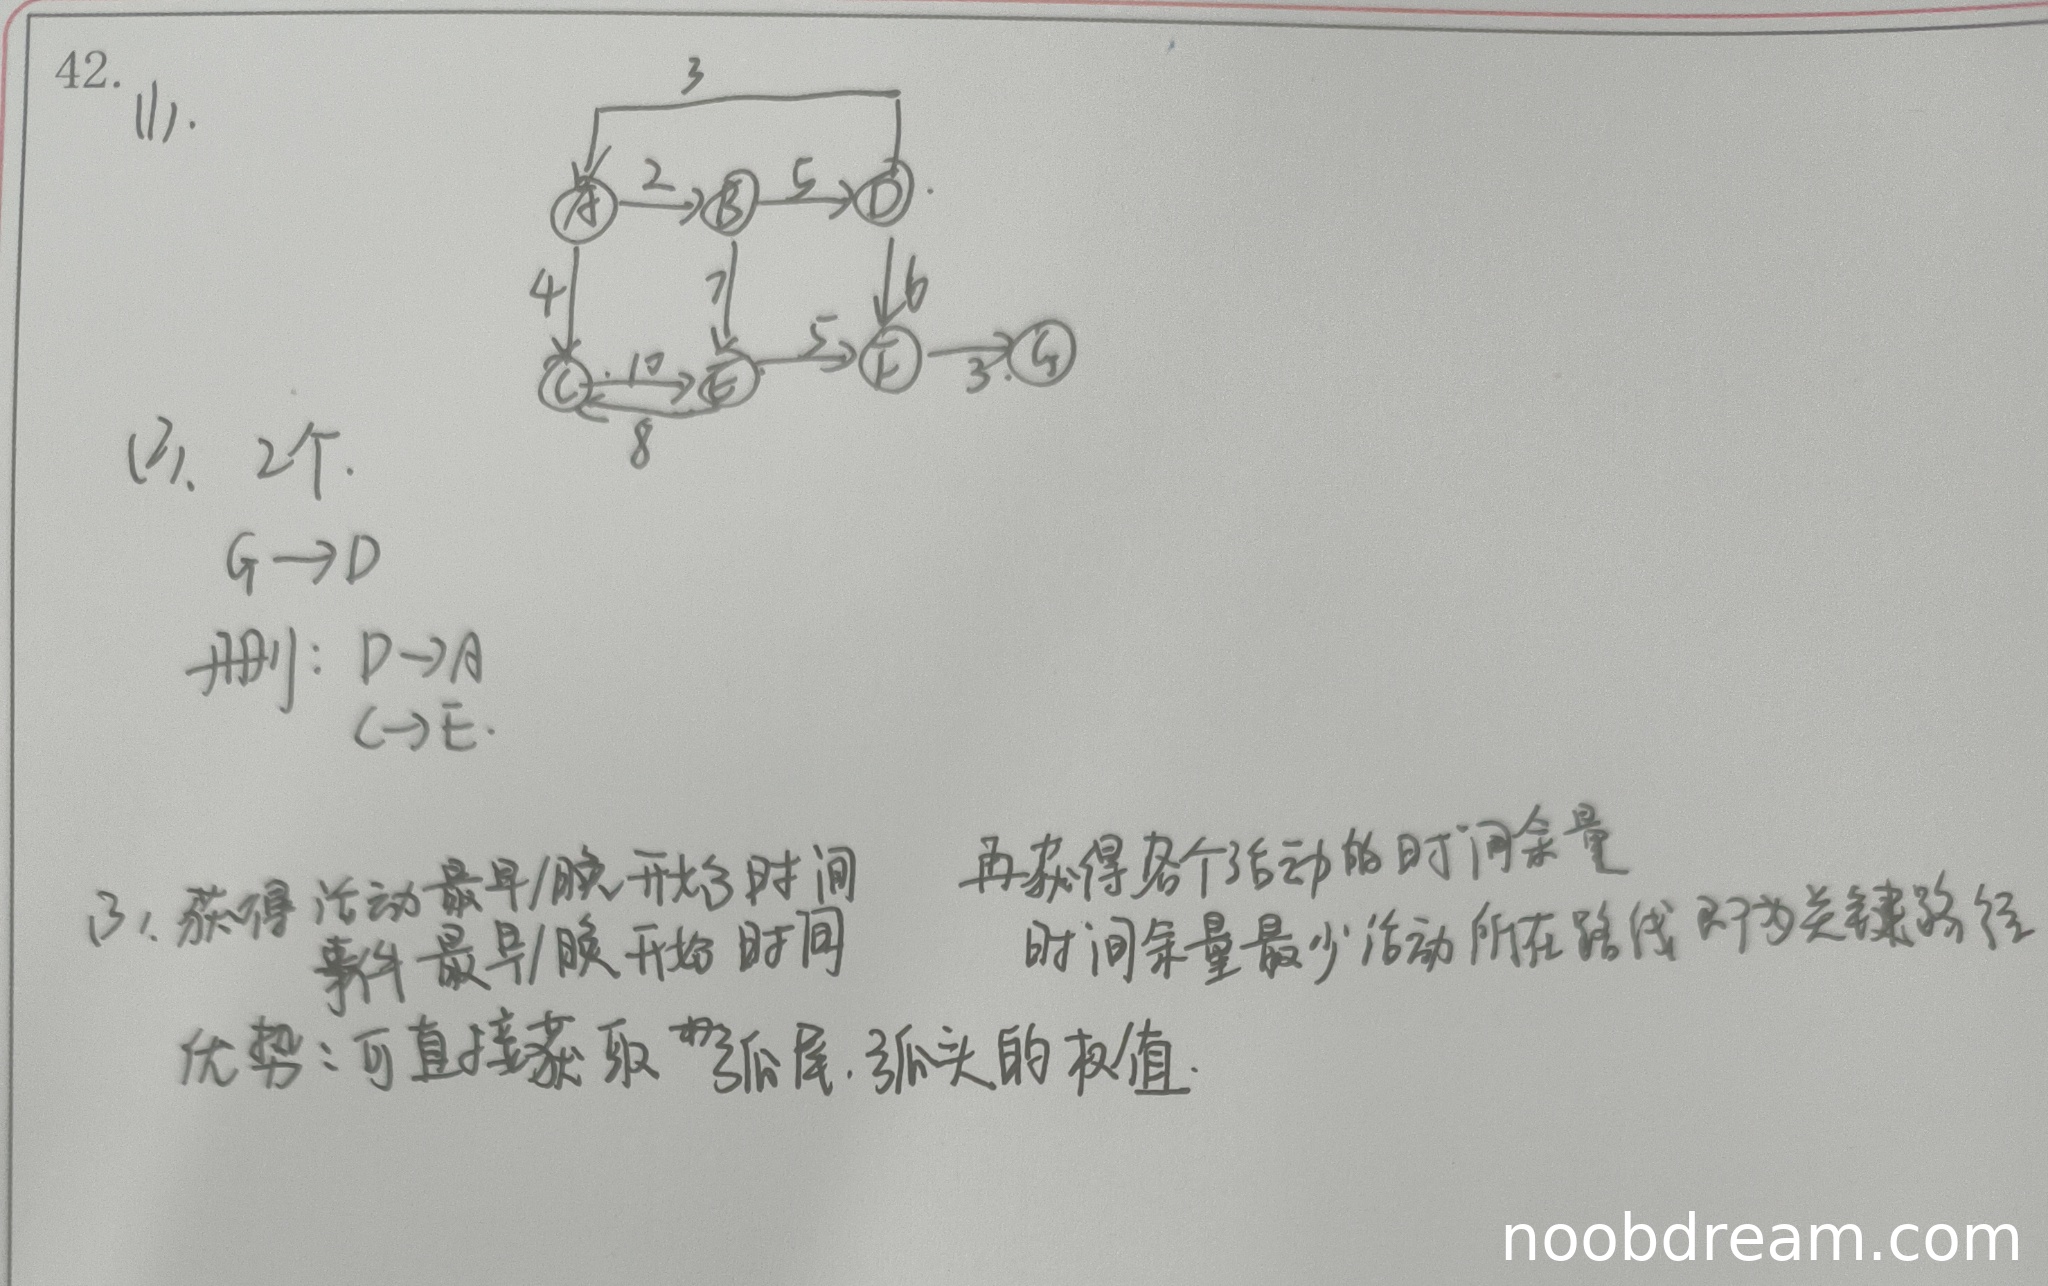 42.
(1).
3
A 2 B 5 D.
4 7 6
C 10 E 5 F 3. G
8
(2). 2个.
G→D
册刂: D→A
C→E.
(3). 获得 活动最早/晚开始时间 再获得各个活动的时间余量
事件最早/晚开始时间 时间余量最少活动所在路线即为关键路径
优势:可直接获取 弧尾.弧头的权值.
noobdream.com